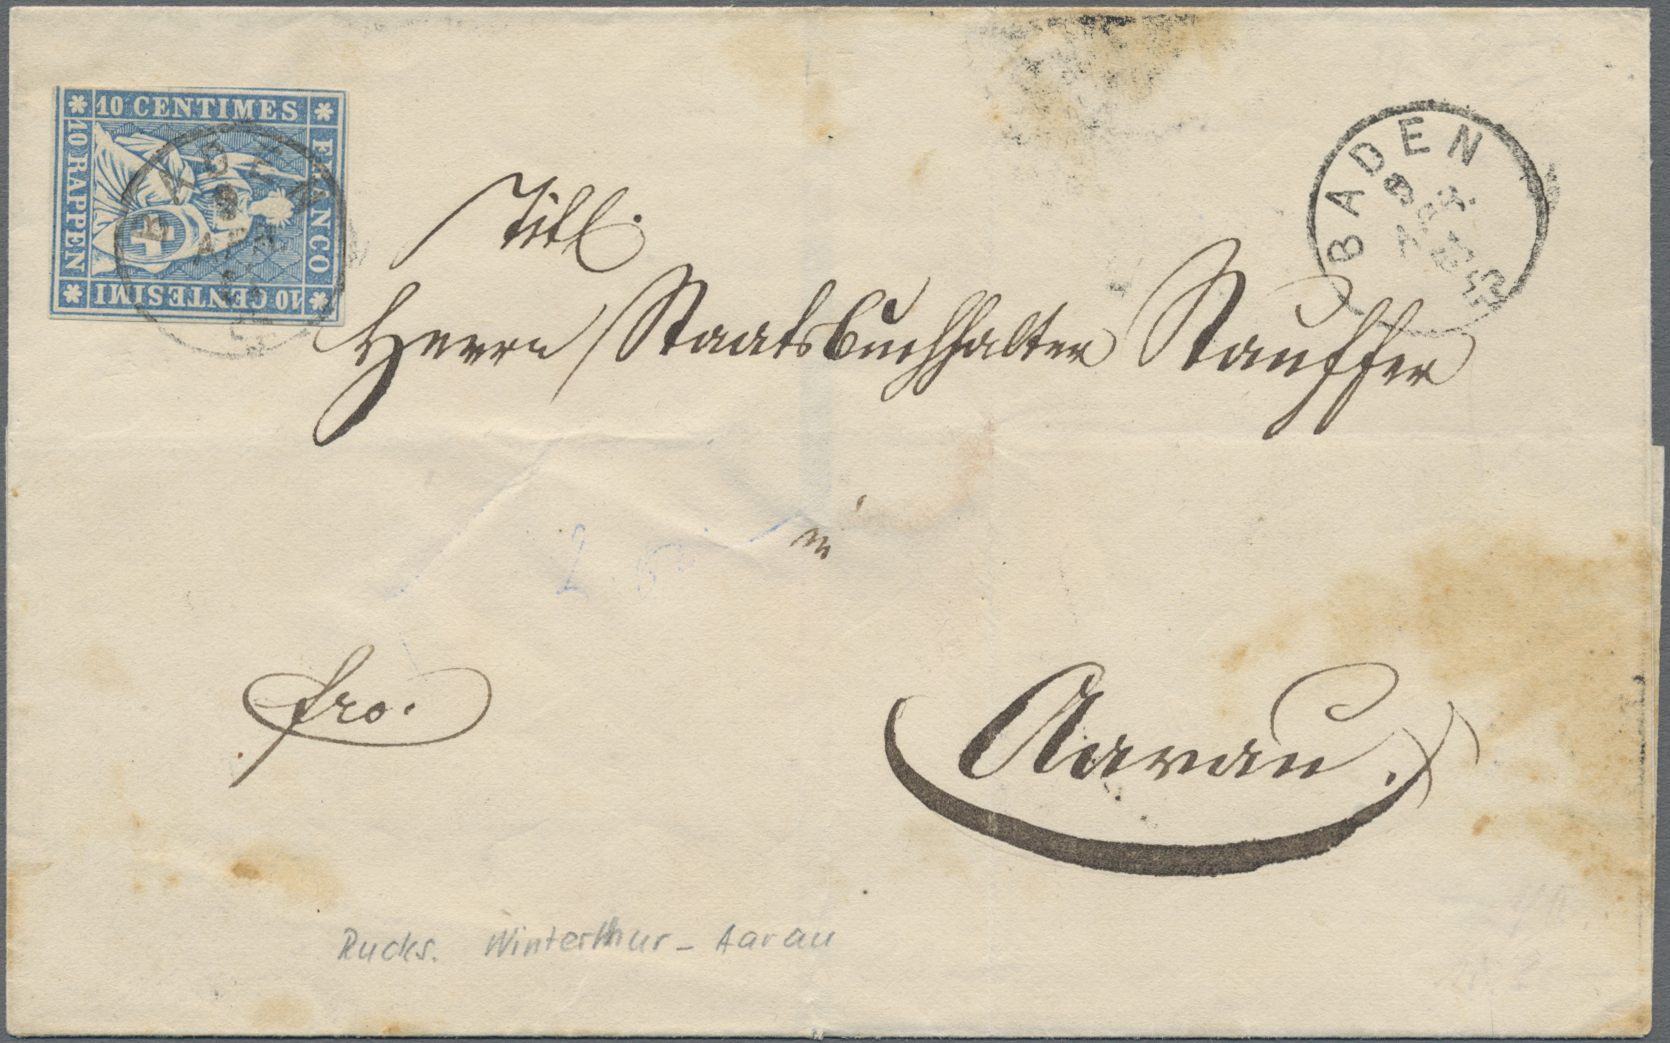 10 CENTIMES
FRANCO
10 CENTESIMI
10 RAPPEN
BADEN
9
APR
BADEN
Titl.
Herrn Staatsbuchhalter Stauffer
in
fro.
Aarau.
Rucks. Winterthur - Aarau